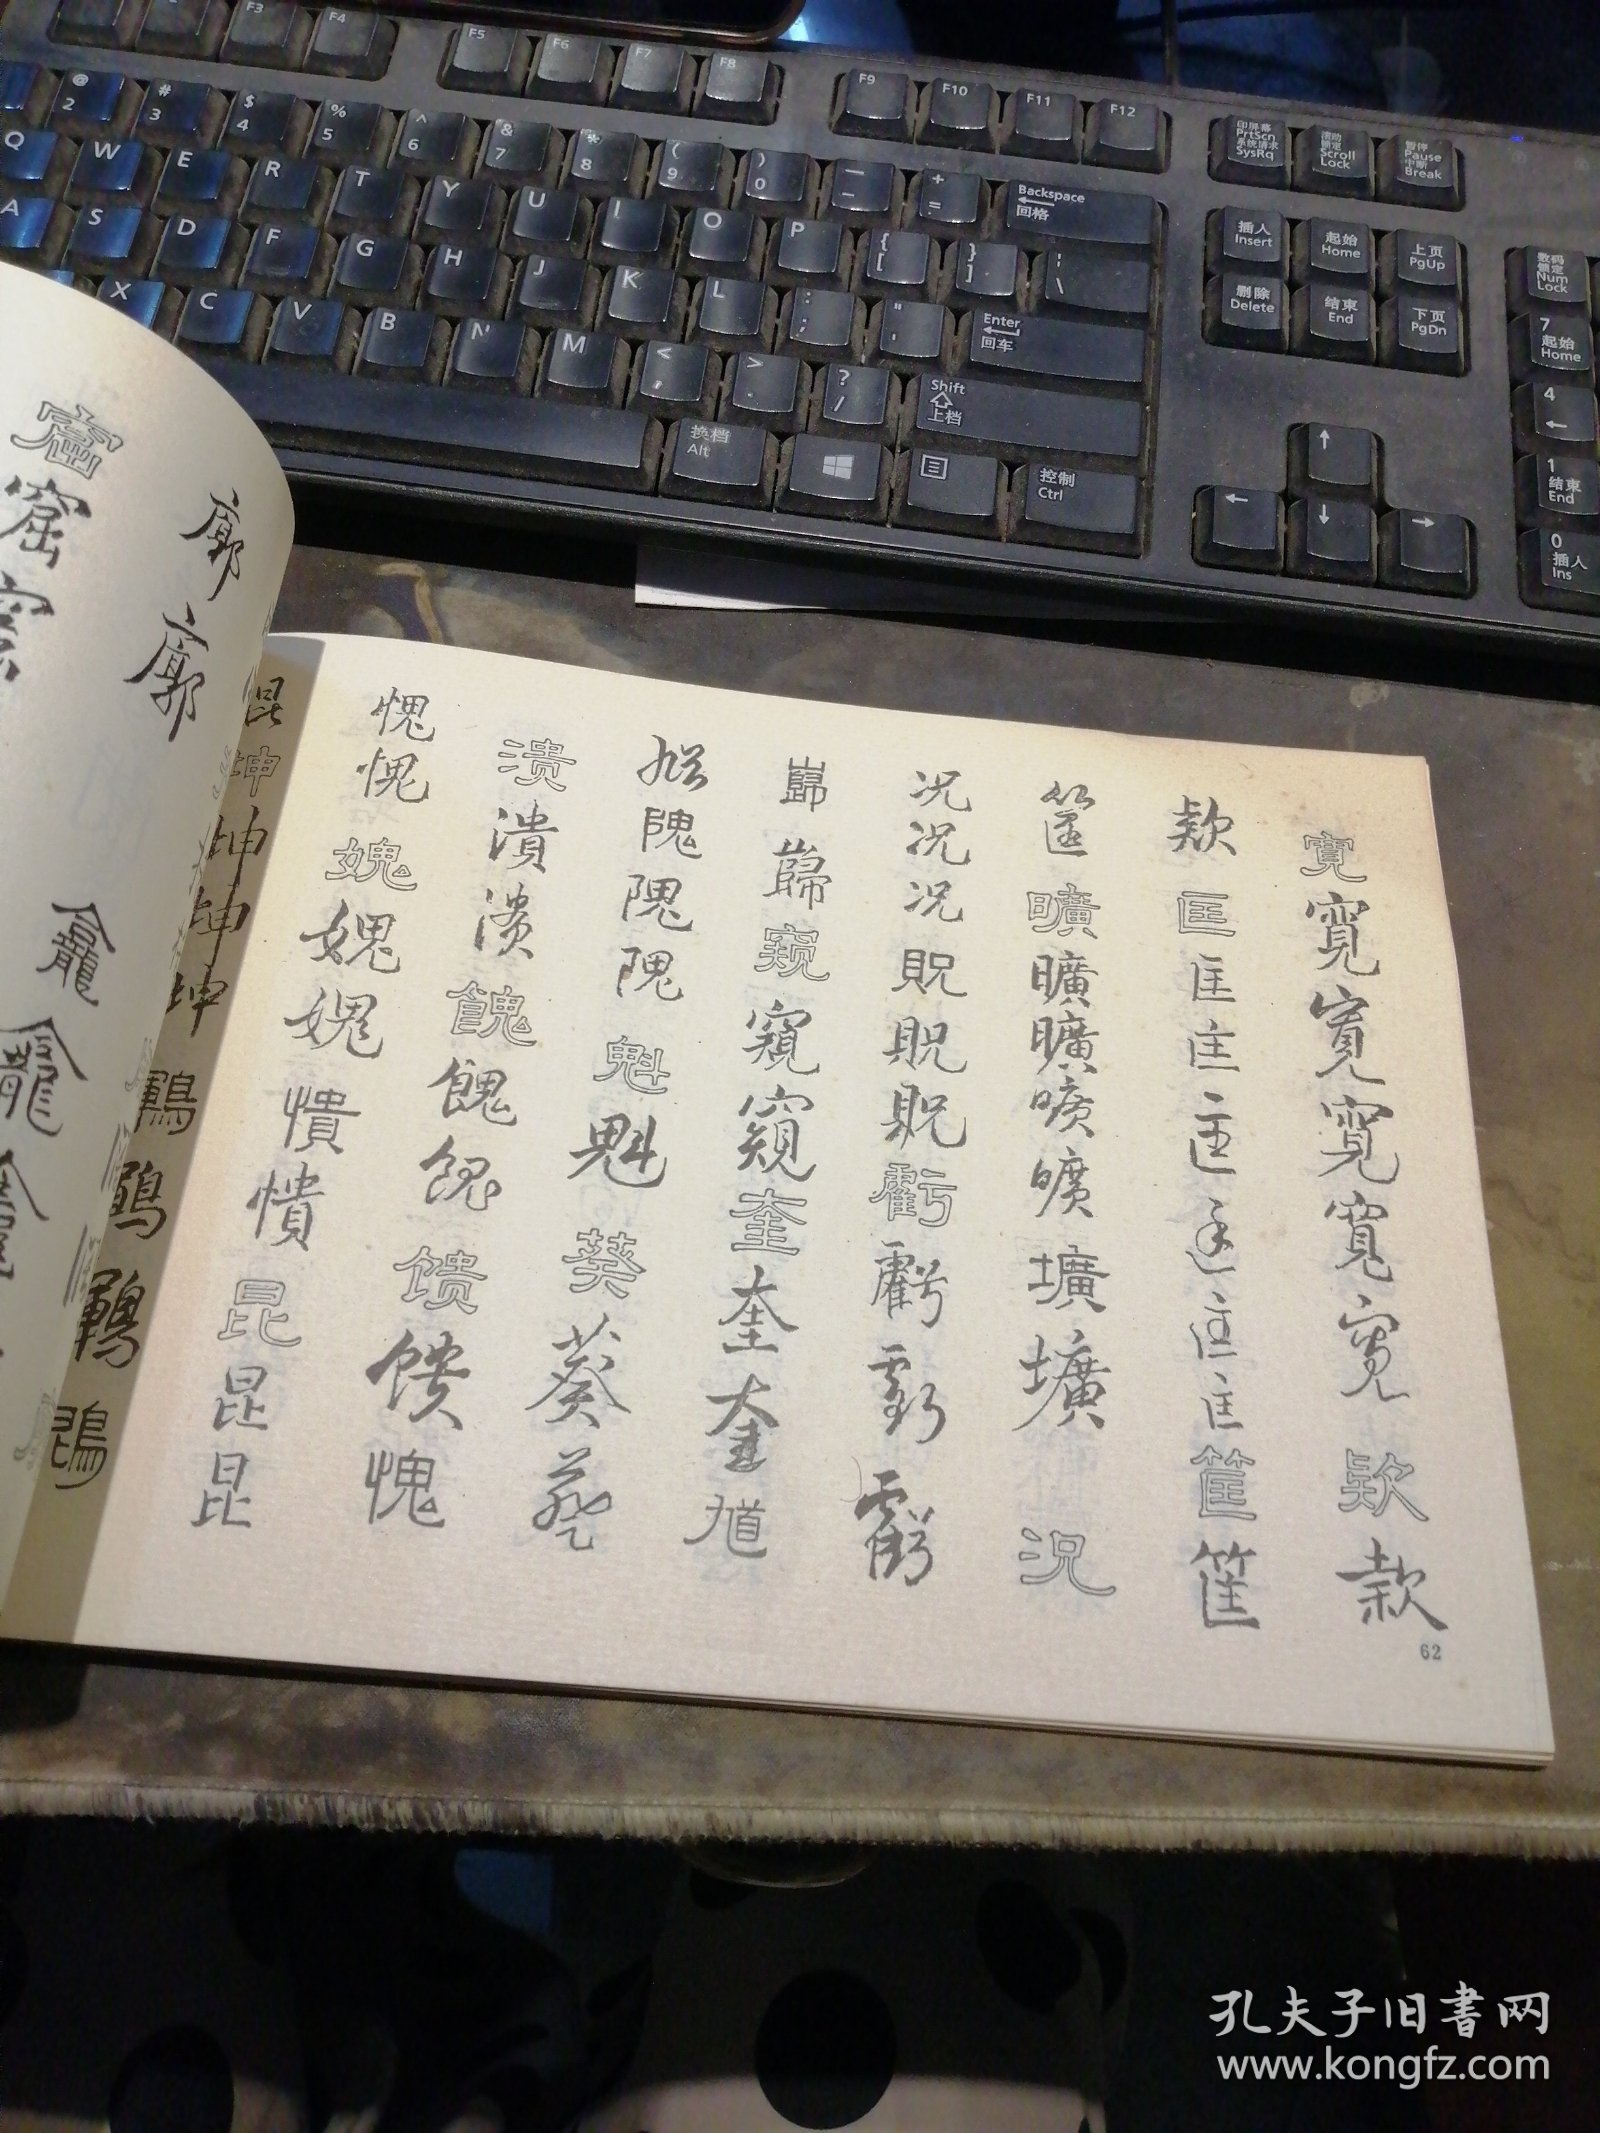 F3 F4 F5 F6 F7 F8 F9 F10 F11 F12
印屏幕 PrtScn 系统请求 SysRq
滚动锁定 Scroll Lock
暂停 Pause 中断 Break
@ 2 # 3 $ 4 % 5 ^ 6 & 7 * 8 ( 9 ) 0 — - + =
Backspace 回格
Q W E R T Y U I O P { [ } ] \
A S D F G H J K L : ; " '
Enter 回车
X C V B N M < , > . ? /
Shift 上档
换档 Alt
控制 Ctrl
插入 Insert
起始 Home
上页 PgUp
删除 Delete
结束 End
下页 PgDn
数码锁定 Num Lock
7 起始 Home
4
1 结束 End
0 插入 Ins
寬寬寬寬寬寬款款
款匡匡匡匡匡匡匡筐筐
筐曠曠曠曠曠壙壙況
况况况貺貺貺虧虧虧虧
巋巋窥窺窺奎奎奎馗
馗隗隗隗魁魁葵葵葵
溃潰溃餽餽餽馈馈愧
愧愧媿媿媿憒憒昆昆昆
崑坤坤坤坤鶤鶤鶤鵾
廓廓龕龕龕
窟窟
62
孔夫子旧书网
www.kongfz.com